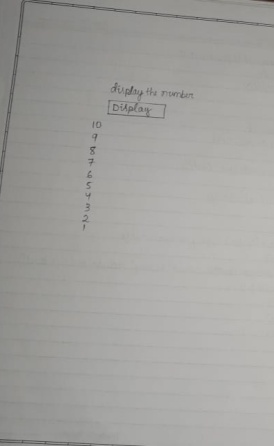 display the number
Display
10
9
8
7
6
5
4
3
2
1